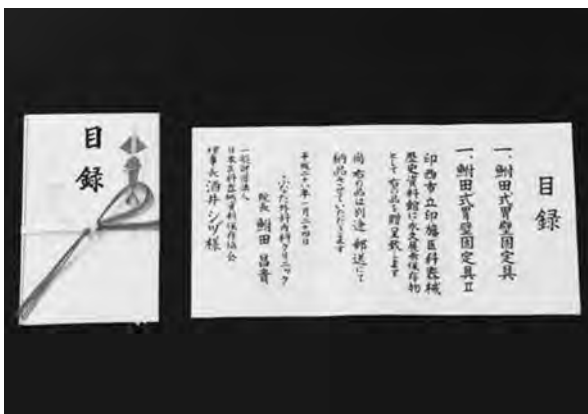 目録
目録
一、鮒田式胃壁固定具
一、鮒田式胃壁固定具Ⅱ
印西市立印旛医科器械
歴史資料館に永久展示保存物
として右の品を贈呈致します
尚右の品は別途郵送にて
納品させていただきます
平成二十八年一月二十四日
ふなだ外科内科クリニック
院長 鮒田昌貴
一般財団法人
日本医科器械資料保存協会
理事長 酒井シヅ様